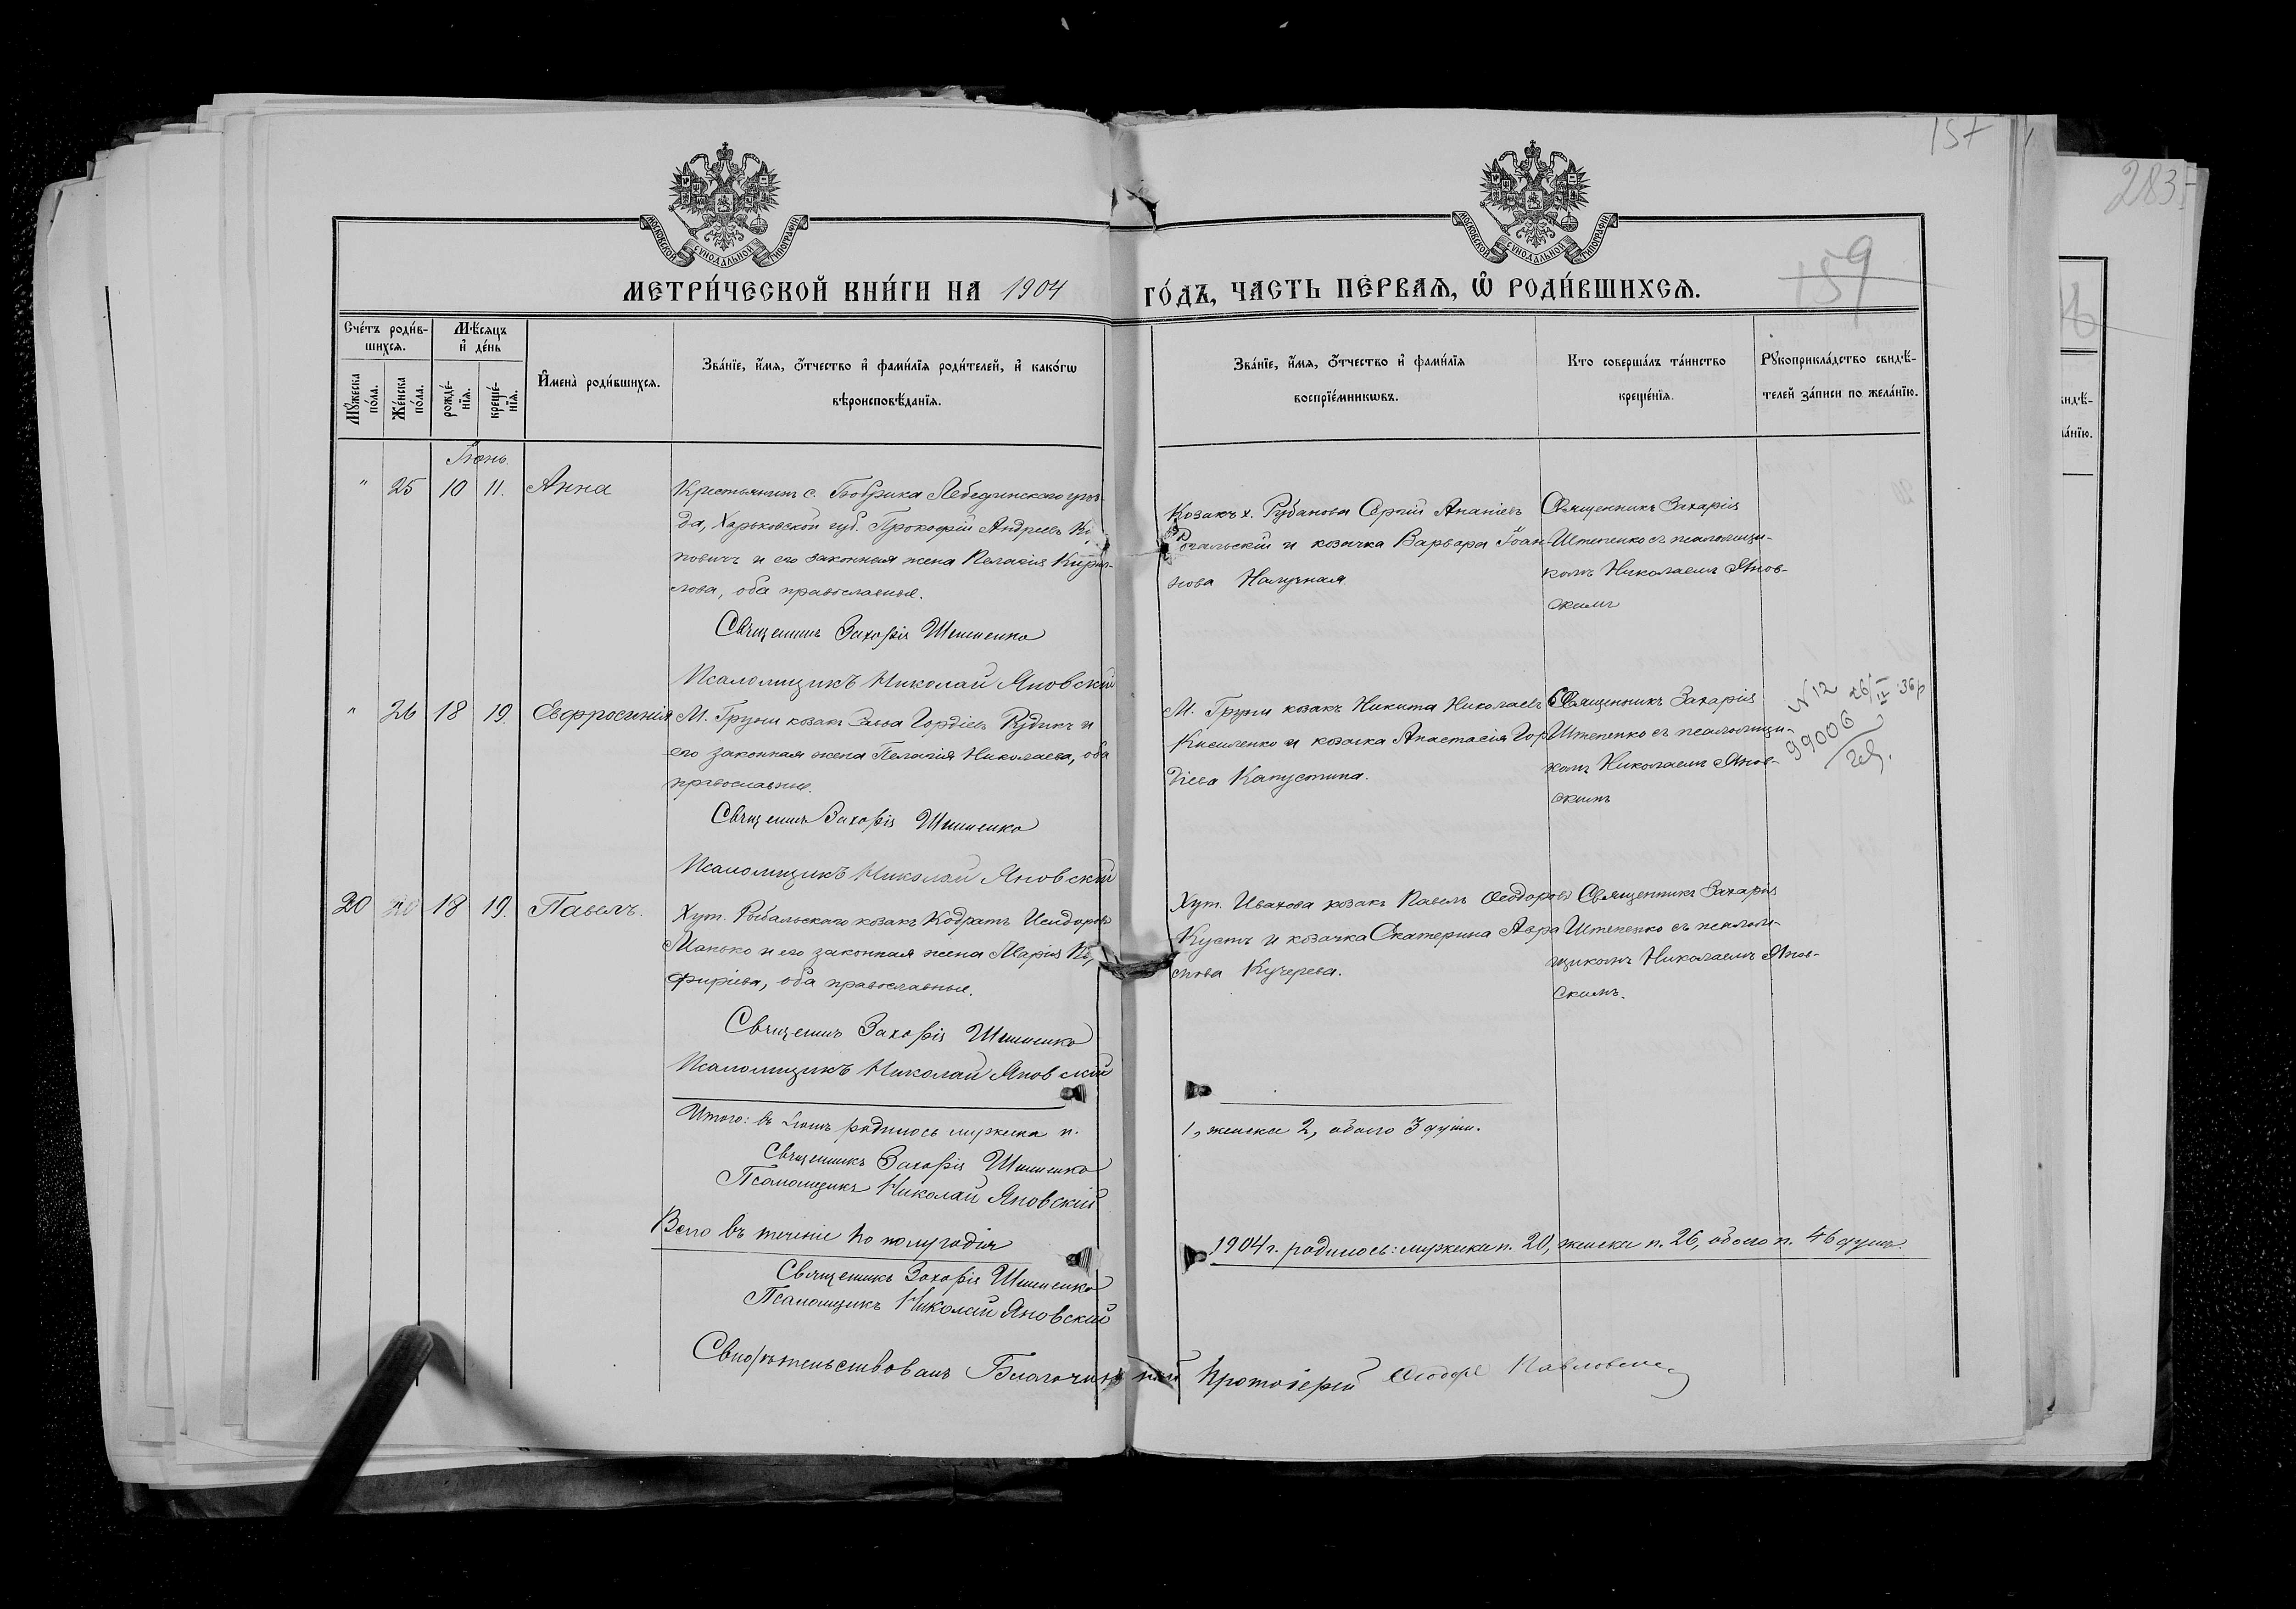 157
283
МОСКОВСКОЙ СѴНОДАЛЬНОЙ ТИПОГРАФІИ
МОСКОВСКОЙ СѴНОДАЛЬНОЙ ТИПОГРАФІИ
159
МЕТРИ́ЧЕСКОЙ КНИ́ГИ НА 1904
ГО́ДЪ, ЧАСТЬ ПЕ́РВАѦ, Ѽ РОДИ́ВШИХСѦ.
Сче́тъ роди́в-
шихсѧ.
Мѣ́сѧцъ
и҆ де́нь
Мꙋ́жеска
по́ла.
Же́нска
по́ла.
рожде́-
нїѧ.
креще́-
нїѧ.
И҆мена̀ роди́вшихсѧ.
Зва́нїе, и҆́мѧ, ѻ҆́тчество и҆ фами́лїѧ роди́телей, и҆ како́гѡ
вѣроисповѣ́данїѧ.
Зва́нїе, и҆́мѧ, ѻ҆́тчество и҆ фами́лїѧ
воспрїе́мникѡвъ.
Кто соверша́лъ та́инство
креще́нїѧ.
Рꙋкоприкла́дство свидѣ́-
телей за́писи по жела́нїю.
Іюнь.
" 25 10 11. Анна
Крестьянинъ с. Бобрика Лебединскаго уѣз-
да, Харьковской губ. Прокофій Андреевъ
повичъ и его законная жена Пелагія Кирил-
лова, оба православные.
Священникъ Захарія Штепенко
Псаломщикъ Николай Яновскій
Козакъ х. Рубанова Сергій Ананіевъ
и козачка Варвара Іоан-
нова
Священникъ Захарія
Штепенко съ псаломщи-
комъ Николаемъ Янов-
скимъ
" 26 18 19. Евфросинія
М. Груни козакъ Гордіевъ Рудикъ и
его законная жена Пелагія Николаева, оба
православные.
Священникъ Захарія Штепенко
Псаломщикъ Николай Яновскій
М. Груни козакъ Никита Николаевъ
Кисиленко и козачка Анастасія Гор
діева Капустина.
Священникъ Захарія
Штепенко съ псаломщи-
комъ Николаемъ Янов-
скимъ
N 12 26/II 36р
99006
20 18 19. Павелъ.
Хут. Рыбальскаго козакъ Кодратъ Исидоровъ
Манько и его законная жена Марія По,
фиріева, оба православные.
Священникъ Захарія Штепенко
Псаломщикъ Николай Яновскій
Хут. Ивахова козакъ Павелъ Ѳеодоровъ
Кустъ и козачка Екатерина Авра
мова Кучерева.
Священникъ Захарія
Штепенко съ псалом-
щикомъ Николаемъ Янов-
скимъ.
Итого: въ Іюнѣ родилось мужеска п.
1, женска 2, обоего 3 души.
Священникъ Захарія Штепенко
Псаломщикъ Николай Яновскій
Всего въ теченіе по полугодія
1904 г. родилось: мужеска п. 20, женска п. 26, обоего п. 46 душъ.
Священникъ Захарія Штепенко
Псаломщикъ Николай Яновскій
Свидѣтельствовалъ Благочинный Протоіерей Ѳеодоръ